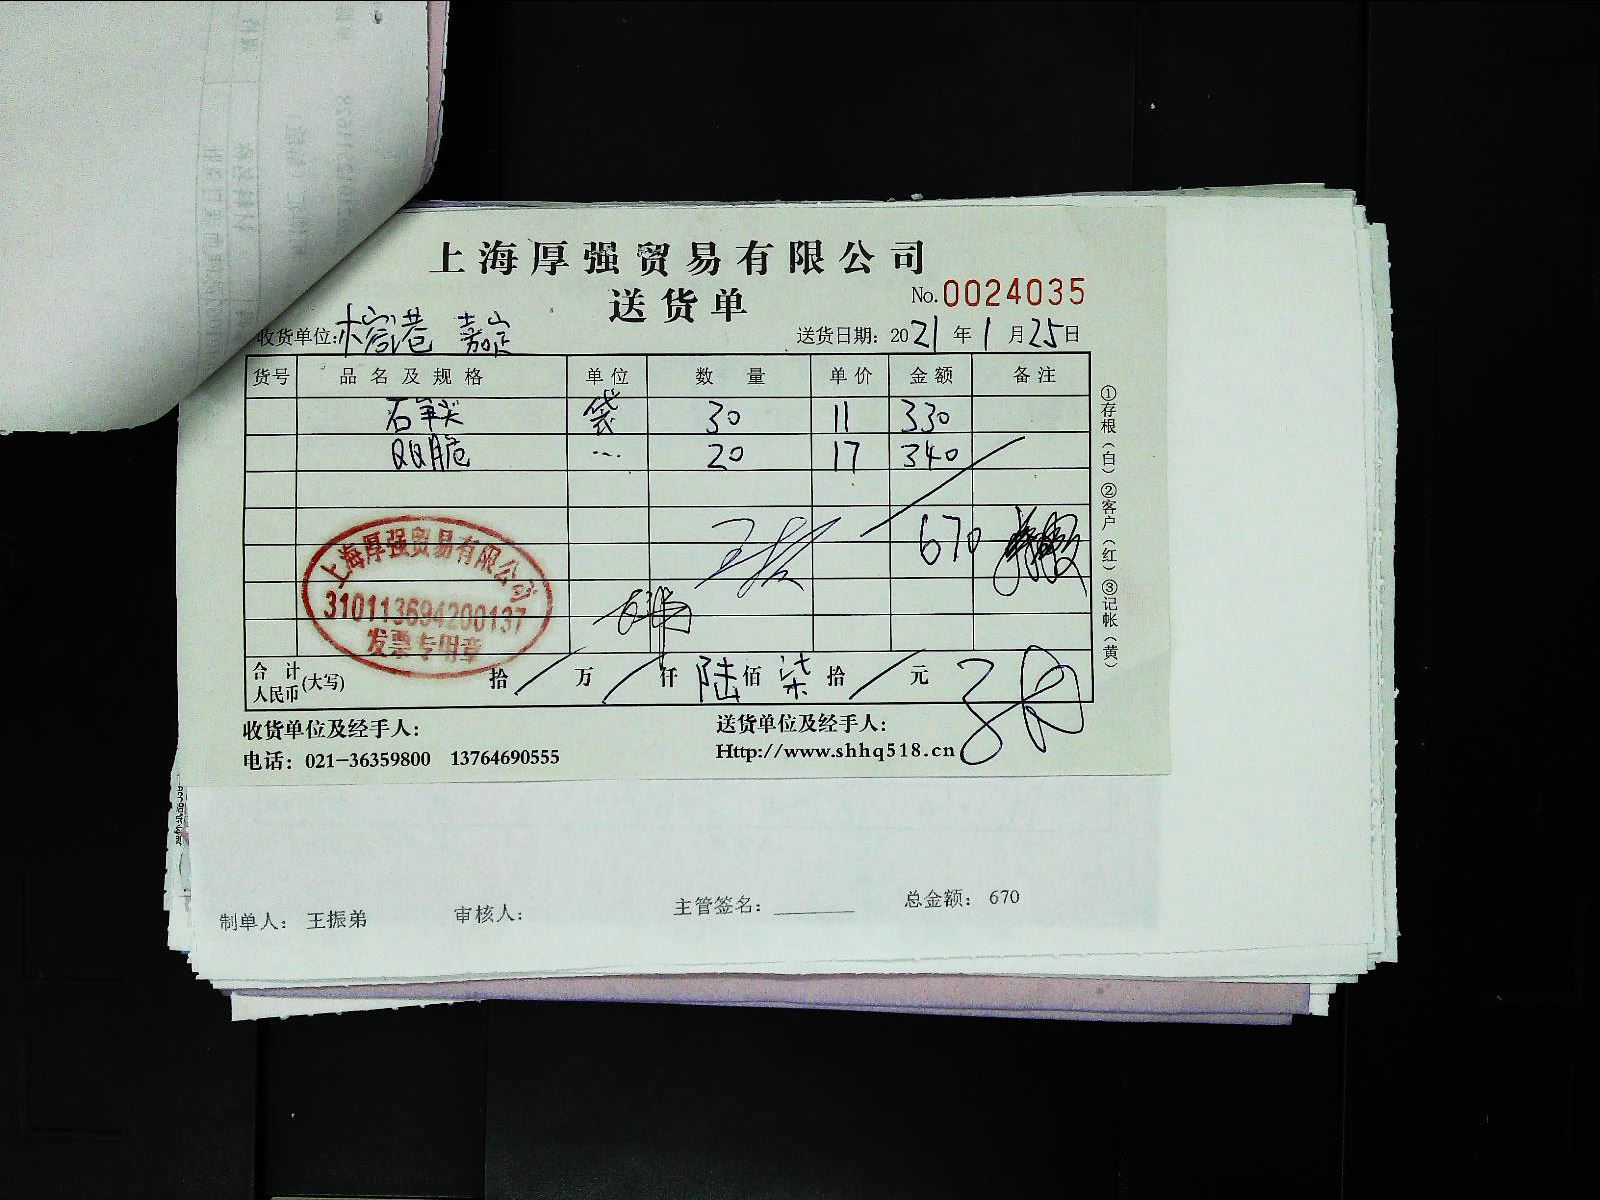 上海厚强贸易有限公司
送货单
No.0024035
收货单位:榕港 嘉定
送货日期: 2021年1月25日
货号 品名及规格 单位 数量 单价 金额 备注
石斧头 袋 30 11 330
QQ脆 … 20 17 340
670
上海厚强贸易有限公司
310113694200137
发票专用章
合计人民币(大写) 拾/万/仟陆佰柒拾/元
①存根(白)②客户(红)③记帐(黄)
收货单位及经手人:
送货单位及经手人:
电话: 021-36359800 13764690555
Http://www.shhq518.cn
制单人: 王振弟 审核人: 主管签名: 总金额: 670